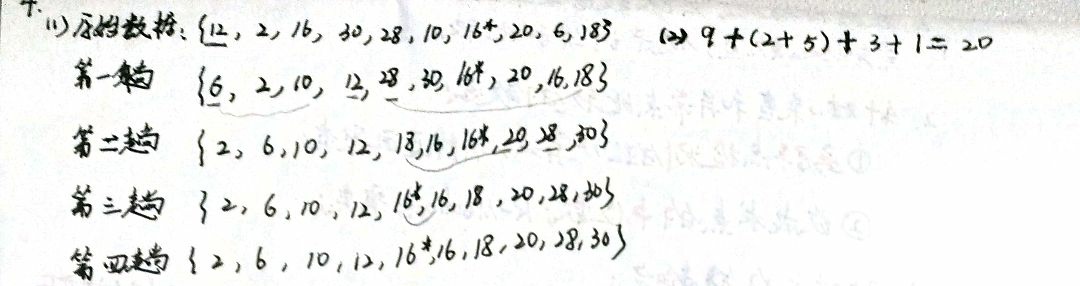 4.
(1) 原始数据: {12, 2, 16, 30, 28, 10, 16*, 20, 6, 18} (2) 9+(2+5)+3+1=20
第一趟 {6, 2, 10, 12, 28, 30, 16*, 20, 16, 18}
第二趟 {2, 6, 10, 12, 18, 16, 16*, 20, 28, 30}
第三趟 {2, 6, 10, 12, 16*, 16, 18, 20, 28, 30}
第四趟 {2, 6, 10, 12, 16*, 16, 18, 20, 28, 30}